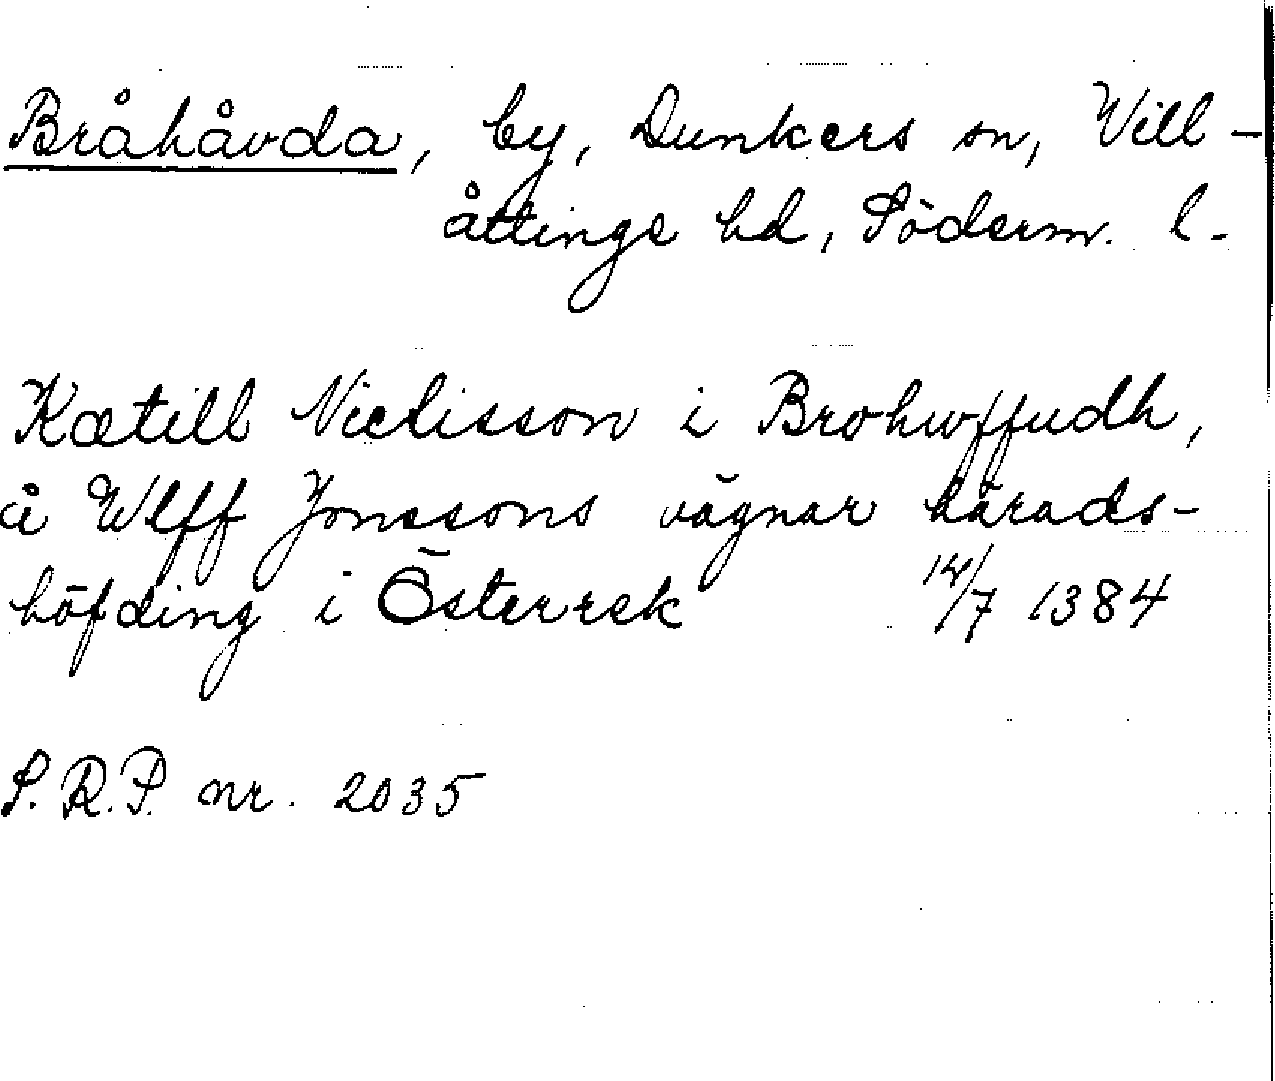 Bråhåvda, by, Dunkers sn, Vill-
åttinge hd, Söderm. l.
Kætill Niclisson i Brohwffudh,
å Wlff Jonssons vägnar härads-
höfding i Österrek 14/7 1384
S.R.P. nr. 2035